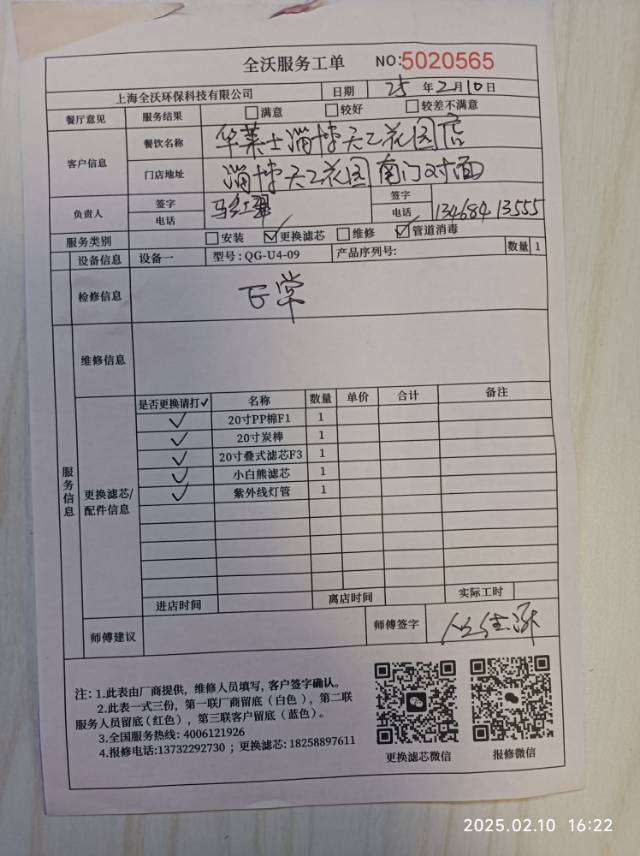 全沃服务工单 NO:5020565
上海全沃环保科技有限公司 日期 25 年 2 月 10 日
餐厅意见 服务结果 □满意 □较好 □较差不满意
客户信息 餐饮名称 华莱士淄博天乙花园店
门店地址 淄博天乙花园南门对面
负责人 签字 签字
电话 电话 13468413555
服务类别 □安装 ☑更换滤芯 □维修 ☑管道消毒
设备信息 设备一 型号:QG-U4-09 产品序列号: 数量 1
检修信息 正常
维修信息
服务信息
更换滤芯/配件信息
是否更换请打✓ 名称 数量 单价 合计 备注
✓ 20寸PP棉F1 1
✓ 20寸炭棒 1
✓ 20寸叠式滤芯F3 1
✓ 小白熊滤芯 1
✓ 紫外线灯管 1
进店时间 离店时间 实际工时
师傅建议 师傅签字
注:1.此表由厂商提供,维修人员填写,客户签字确认。
2.此表一式三份,第一联厂商留底(白色),第二联
服务人员留底(红色),第三联客户留底(蓝色)。
3.全国服务热线: 4006121926
4.报修电话:13732292730 ; 更换滤芯: 18258897611
更换滤芯微信 报修微信
2025.02.10 16:22